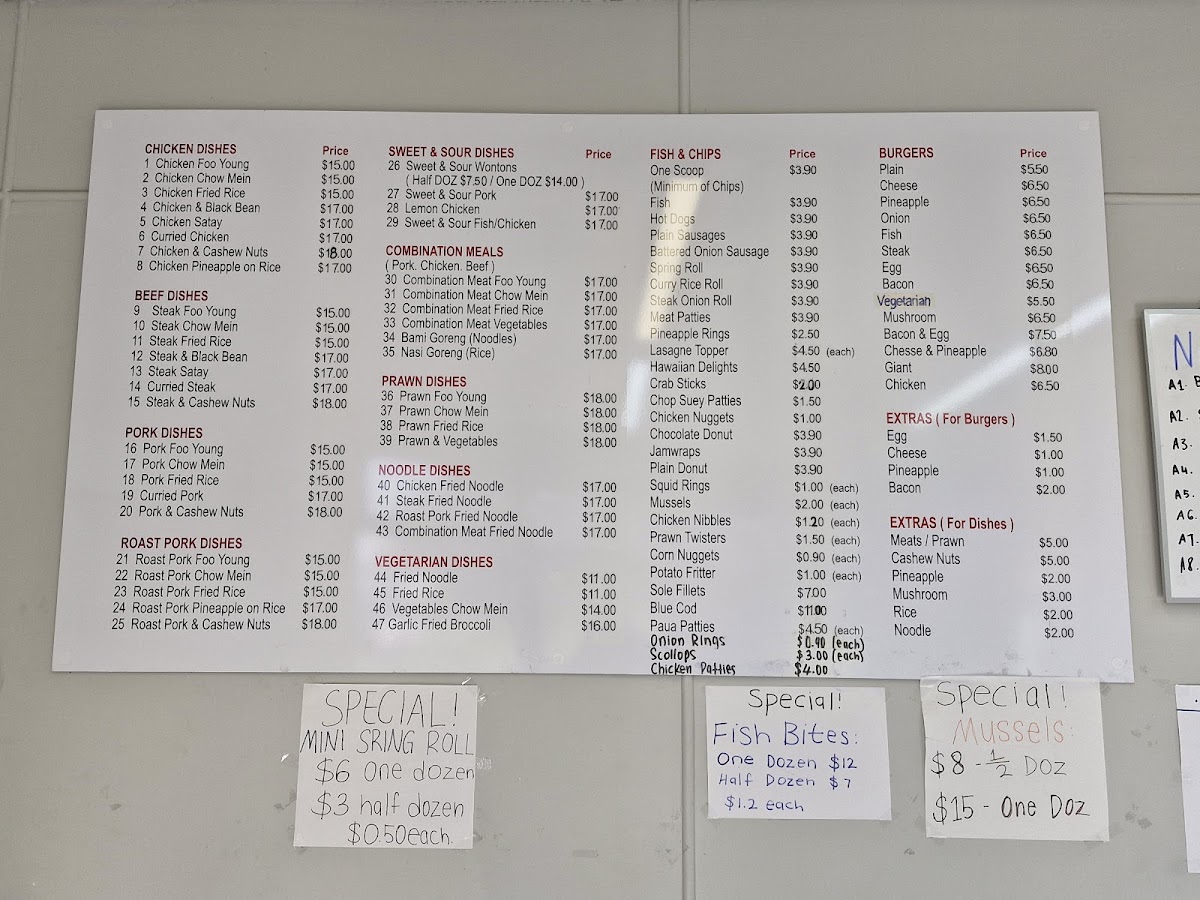 CHICKEN DISHES Price
1 Chicken Foo Young $15.00
2 Chicken Chow Mein $15.00
3 Chicken Fried Rice $15.00
4 Chicken & Black Bean $17.00
5 Chicken Satay $17.00
6 Curried Chicken $17.00
7 Chicken & Cashew Nuts $18.00
8 Chicken Pineapple on Rice $17.00
BEEF DISHES
9 Steak Foo Young $15.00
10 Steak Chow Mein $15.00
11 Steak Fried Rice $15.00
12 Steak & Black Bean $17.00
13 Steak Satay $17.00
14 Curried Steak $17.00
15 Steak & Cashew Nuts $18.00
PORK DISHES
16 Pork Foo Young $15.00
17 Pork Chow Mein $15.00
18 Pork Fried Rice $15.00
19 Curried Pork $17.00
20 Pork & Cashew Nuts $18.00
ROAST PORK DISHES
21 Roast Pork Foo Young $15.00
22 Roast Pork Chow Mein $15.00
23 Roast Pork Fried Rice $15.00
24 Roast Pork Pineapple on RIce $17.00
25 Roast Pork & Cashew Nuts $18.00
SWEET & SOUR DISHES Price
26 Sweet & Sour Wontons
( Half DOZ $7.50 / One DOZ $14.00 )
27 Sweet & Sour Pork $17.00
28 Lemon Chicken $17.00
29 Sweet & Sour Fish/Chicken $17.00
COMBINATION MEALS
( Pork. Chicken. Beef )
30 Combination Meat Foo Young $17.00
31 Combination Meat Chow Mein $17.00
32 Combination Meat Fried Rice $17.00
33 Combination Meat Vegetables $17.00
34 Bami Goreng (Noodles) $17.00
35 Nasi Goreng (Rice) $17.00
PRAWN DISHES
36 Prawn Foo Young $18.00
37 Prawn Chow Mein $18.00
38 Prawn Fried Rice $18.00
39 Prawn & Vegetables $18.00
NOODLE DISHES
40 Chicken Fried Noodle $17.00
41 Steak Fried Noodle $17.00
42 Roast Pork Fried Noodle $17.00
43 Combination Meat Fried Noodle $17.00
VEGETARIAN DISHES
44 Fried Noodle $11.00
45 Fried Rice $11.00
46 Vegetables Chow Mein $14.00
47 Garlic Fried Broccoli $16.00
FISH & CHIPS Price
One Scoop $3.90
(Minimum of Chips)
Fish $3.90
Hot Dogs $3.90
Plain Sausages $3.90
Battered Onion Sausage $3.90
Spring Roll $3.90
Curry Rice Roll $3.90
Steak Onion Roll $3.90
Meat Patties $3.90
Pineapple Rings $2.50
Lasagne Topper $4.50 (each)
Hawaiian Delights $4.50
Crab Sticks $2.00
Chop Suey Patties $1.50
Chicken Nuggets $1.00
Chocolate Donut $3.90
Jamwraps $3.90
Plain Donut $3.90
Squid Rings $1.00 (each)
Mussels $2.00 (each)
Chicken Nibbles $1.20 (each)
Prawn Twisters $1.50 (each)
Corn Nuggets $0.90 (each)
Potato Fritter $1.00 (each)
Sole Fillets $7.00
Blue Cod $11.00
Paua Patties $4.50 (each)
Onion RIngs $0.90 (each)
Scollops $3.00 (each)
Chicken Patties $4.00
BURGERS Price
Plain $5.50
Cheese $6.50
Pineapple $6.50
Onion $6.50
Fish $6.50
Steak $6.50
Egg $6.50
Bacon $6.50
Vegetarian $5.50
Mushroom $6.50
Bacon & Egg $7.50
Chesse & Pineapple $6.80
Giant $8.00
Chicken $6.50
EXTRAS ( For Burgers )
Egg $1.50
Cheese $1.00
Pineapple $1.00
Bacon $2.00
EXTRAS ( For Dishes )
Meats / Prawn $5.00
Cashew Nuts $5.00
Pineapple $2.00
Mushroom $3.00
Rice $2.00
Noodle $2.00
N
A1.
A2.
A3.
A4.
A5.
A6.
A7.
A8.
SPECIAL!
MINI SRING ROLL
$6 One dozen
$3 half dozen
$0.50 each.
Special!
Fish Bites:
One Dozen $12
Half Dozen $7
$1.2 each
Special!
Mussels:
$8 - 1/2 DOZ
$15 - One Doz